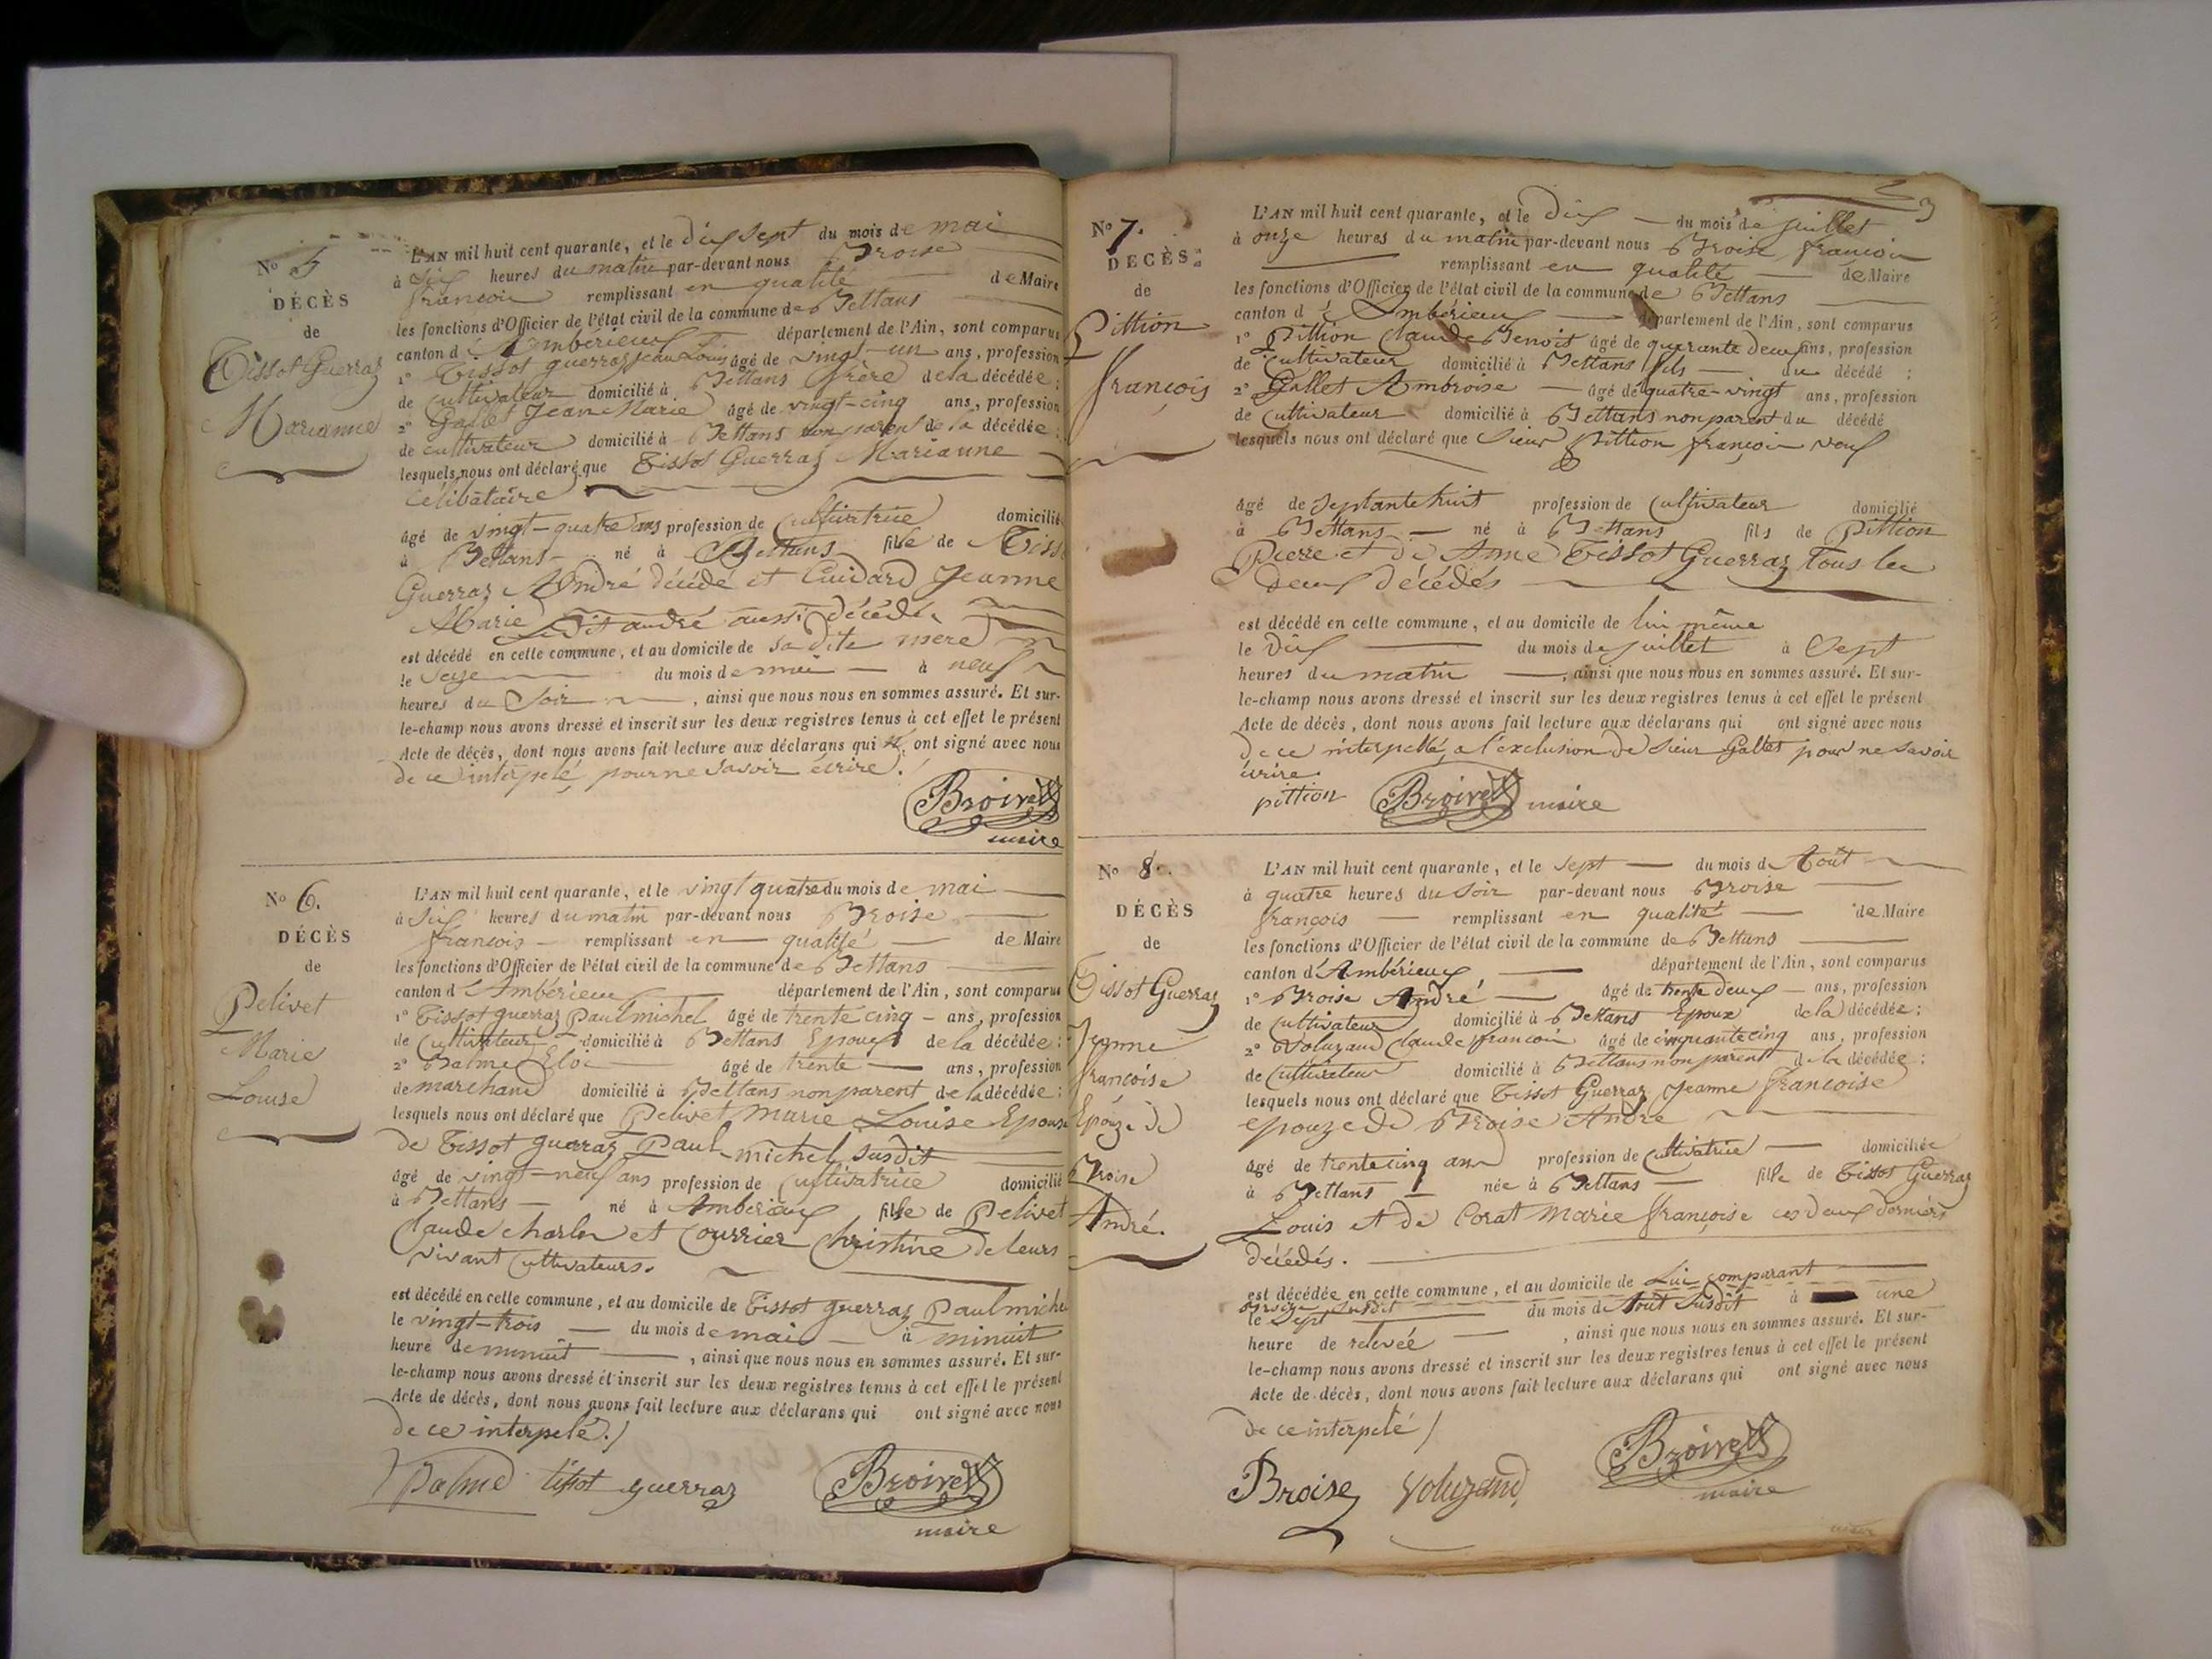 N° 5
DÉCÈS
de
Tissot Guerraz
Marianne
L'AN mil huit cent quarante, et le dix sept du mois de mai
à six heures du matin par-devant nous Broise
françois remplissant en qualité de Maire
les fonctions d'Officier de l'état civil de la commune de Bettans
canton d'Ambérieux département de l'Ain, sont comparus
1° Tissot guerraz jean Louis âgé de vingt-un ans, profession
de cultivateur domicilié à Bettans frère de la décédée:
2° Gallet Jean Marie âgé de vingt-cinq ans, profession
de cultivateur domicilié à Bettans non parent de la décédée:
lesquels nous ont déclaré que Tissot Guerraz Marianne
célibataire
âgé de vingt-quatre ans profession de Cultivatrice domicilié
à Bettans né à Bettans fille de Tiss
Guerraz André décédé et Cuidard Jeanne
Marie Ledit andré aussi décédé
est décédé en cette commune, et au domicile de sa dite mere
le Seize du mois de mai à neuf
heures du Soir, ainsi que nous nous en sommes assuré. Et sur-
le-champ nous avons dressé et inscrit sur les deux registres tenus à cet effet le présent
Acte de décès, dont nous avons fait lecture aux déclarans qui n' ont signé avec nous
de ce interpelé, pour ne savoir écrire.
Broise
maire
N° 6.
DÉCÈS
de
Pelivet
Marie
Louise
L'AN mil huit cent quarante, et le vingt quatre du mois de mai
à six heures du matin par-devant nous Broise
françois remplissant en qualité de Maire
les fonctions d'Officier de l'état civil de la commune de Bettans
canton d'Ambérieux département de l'Ain, sont comparus
1° Tissot guerraz Paul michel âgé de trente cinq ans, profession
de Cultivateur domicilié à Bettans Epoux de la décédée:
2° Balme Eloi âgé de trente ans, profession
de marchand domicilié à Bettans non parent de la décédée:
lesquels nous ont déclaré que Pelivet Marie Louise Epouse
de Tissot guerraz Paul michel susdit
âgé de vingt-neuf ans profession de Cultivatrice domicilié
à Bettans né à Ambérieux fille de Pelivet
Claude charles et Courrier Christine de leurs
vivant Cultivateurs.
est décédé en cette commune, et au domicile de Tissot guerraz Paul miche
le vingt-trois du mois de mai à minuit
heure de minuit, ainsi que nous nous en sommes assuré. Et sur-
le-champ nous avons dressé et inscrit sur les deux registres tenus à cet effet le présent
Acte de décès, dont nous avons fait lecture aux déclarans qui ont signé avec nous
de ce interpelé.
Balme tissot guerraz Broise
maire
3
N° 7.
DÉCÈS
de
Pittion
françois
L'AN mil huit cent quarante, et le dix du mois de juillet
à onze heures du matin par-devant nous Broise françois
remplissant en qualité de Maire
les fonctions d'Officier de l'état civil de la commune de Bettans
canton d'Ambérieux département de l'Ain, sont comparus
1° Pittion Claude Benoit âgé de quarante deux ans, profession
de Cultivateur domicilié à Bettans fils du décédé:
2° Gallet Ambroise âgé de quatre-vingt ans, profession
de Cultivateur domicilié à Bettans non parent du décédé
lesquels nous ont déclaré que Sieur Pittion françois veuf
âgé de septante huit profession de Cultivateur domicilié
à Bettans né à Bettans fils de Pittion
Pierre et de Anne Tissot Guerraz tous les
deux décédés
est décédé en cette commune, et au domicile de lui même
le dix du mois de juillet à sept
heures du matin, ainsi que nous nous en sommes assuré. Et sur-
le-champ nous avons dressé et inscrit sur les deux registres tenus à cet effet le présent
Acte de décès, dont nous avons fait lecture aux déclarans qui ont signé avec nous
de ce interpellé, a l'exclusion de Sieur Gallet pour ne savoir
écrire.
pittion Broise maire
N° 8.
DÉCÈS
de
Tissot Guerraz
Jeanne
françoise
Epouze de
Broise
André.
L'AN mil huit cent quarante, et le sept du mois d'Août
à quatre heures du soir par-devant nous Broise
françois remplissant en qualité de Maire
les fonctions d'Officier de l'état civil de la commune de Bettans
canton d'Ambérieux département de l'Ain, sont comparus
1° Broise André âgé de trente deux ans, profession
de Cultivateur domicilié à Bettans Epoux de la décédée:
2° Voluzand Claude françois âgé de cinquante cinq ans, profession
de Cultivateur domicilié à Bettans non parent de la décédée:
lesquels nous ont déclaré que Tissot Guerraz Jeanne françoise
epouze de Broise André
âgé de trente cinq ans profession de Cultivatrice domiciliée
à Bettans née à Bettans fille de Tissot Guerraz
Louis et de Corat Marie françoise ces deux derniers
décédés.
est décédée en cette commune, et au domicile de Lui comparant
Broise susdit
le Sept du mois d'Août susdit à une
heure de relevée, ainsi que nous nous en sommes assuré. Et sur-
le-champ nous avons dressé et inscrit sur les deux registres tenus à cet effet le présent
Acte de décès, dont nous avons fait lecture aux déclarans qui ont signé avec nous
de ce interpelé
Broise Voluzand Broise
maire